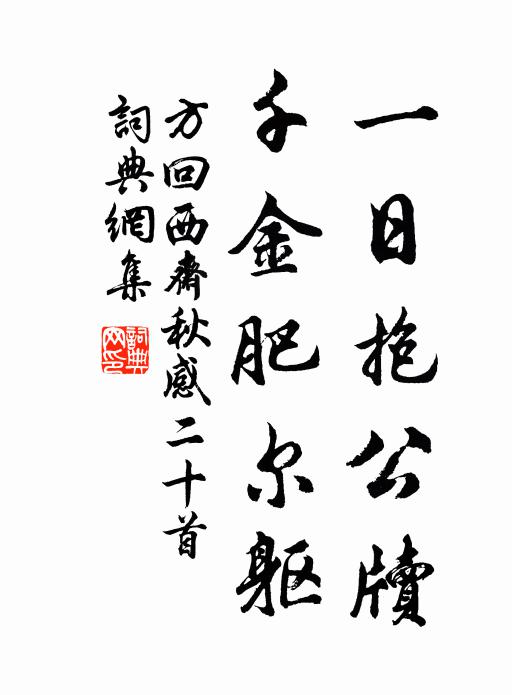 一日抱公牘
千金肥尔躯
方回西齋秋感二十首
詞典網集
詞典網印